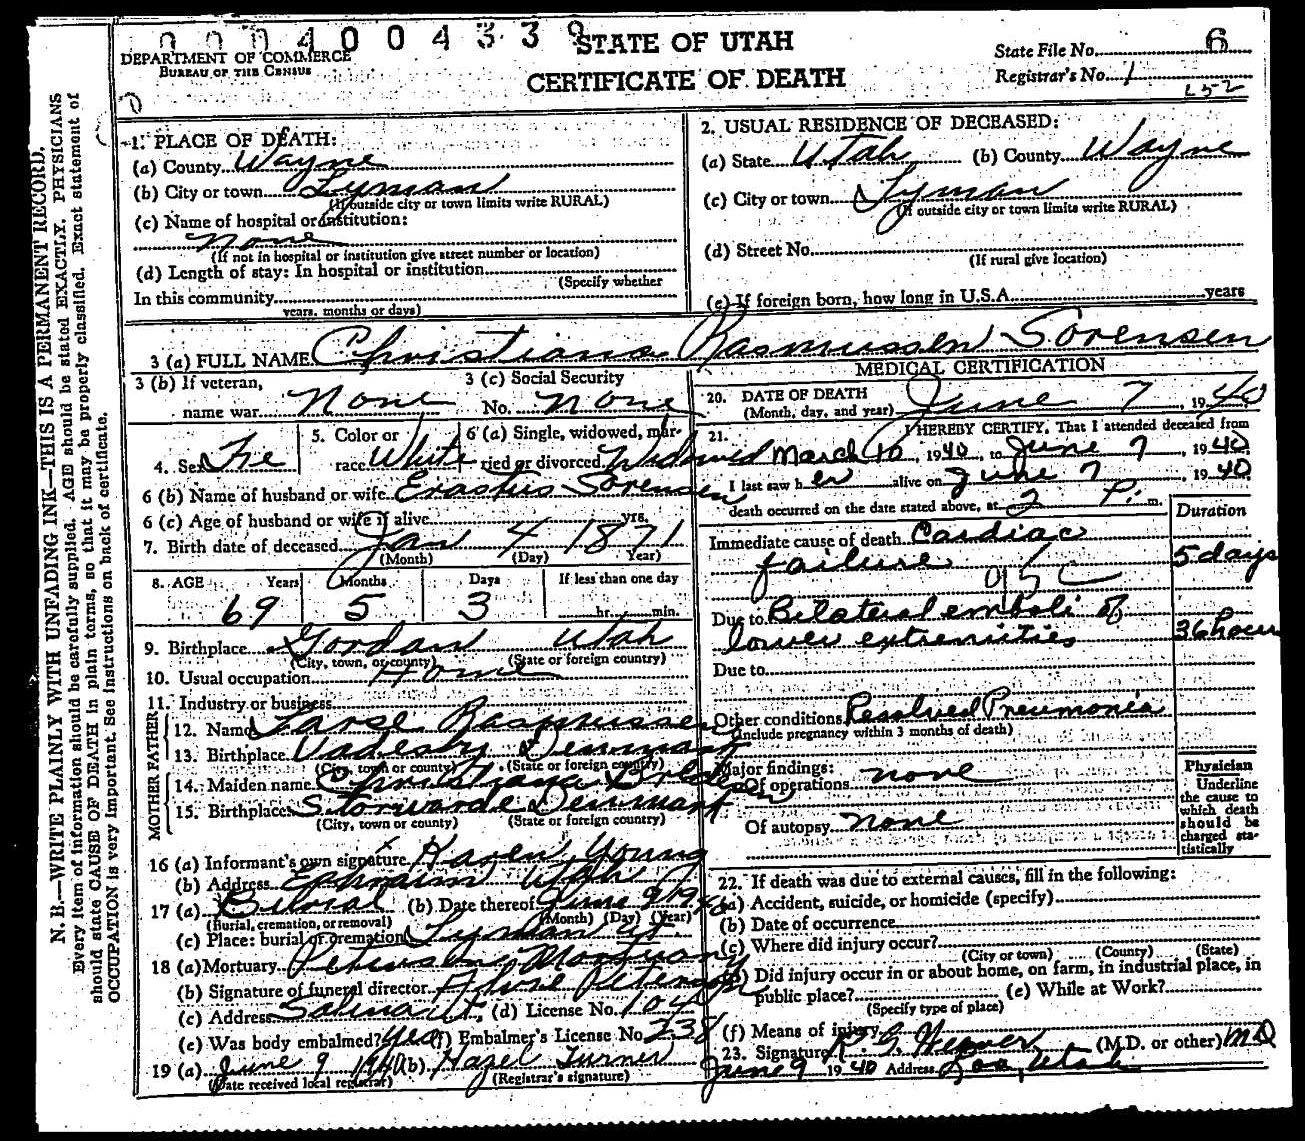 0004004339
STATE OF UTAH
CERTIFICATE OF DEATH
DEPARTMENT OF COMMERCE
BUREAU OF THE CENSUS
State File No. 6
Registrar's No. 1
252
N. B.—WRITE PLAINLY WITH UNFADING INK—THIS IS A PERMANENT RECORD.
Every item of information should be carefully supplied. AGE should be stated EXACTLY. PHYSICIANS
should state CAUSE OF DEATH in plain terms, so that it may be properly classified. Exact statement of
OCCUPATION is very important. See instructions on back of certificate.
1. PLACE OF DEATH:
(a) County Wayne
(b) City or town Lyman
(If outside city or town limits write RURAL)
(c) Name of hospital or institution:
None
(If not in hospital or institution give street number or location)
(d) Length of stay: In hospital or institution
(Specify whether
In this community
years, months or days)
2. USUAL RESIDENCE OF DECEASED:
(a) State Utah (b) County Wayne
(c) City or town Lyman
(If outside city or town limits write RURAL)
(d) Street No.
(If rural give location)
(e) If foreign born, how long in U.S.A. years
3 (a) FULL NAME Christiana Rasmussen Sorensen
3 (b) If veteran, name war None
3 (c) Social Security No. None
4. Sex Fe
5. Color or race White
6 (a) Single, widowed, married or divorced Widowed
6 (b) Name of husband or wife Erastus Sorensen
6 (c) Age of husband or wife if alive yrs.
7. Birth date of deceased Jan 4 1871
(Month) (Day) Year)
8. AGE Years Months Days If less than one day
69 5 3 hr. min.
9. Birthplace Jordan Utah
(City, town, or county) (State or foreign country)
10. Usual occupation Home
11. Industry or business
FATHER
12. Name Larse Rasmussen
13. Birthplace Denmark
(City, town or county) (State or foreign country)
MOTHER
14. Maiden name Christiana
15. Birthplace Denmark
(City, town or county) (State or foreign country)
16 (a) Informant's own signature X Karen Young
(b) Address Ephraim Utah
17 (a) Bural (b) Date thereof June 9 1940
(Burial, cremation, or removal) (Month) (Day) (Year)
(c) Place: burial or cremation Lyman Ut
18 (a) Mortuary Petersen Mortuary
(b) Signature of funeral director Petersen
(c) Address Salina Ut. (d) License No. 104
(e) Was body embalmed? Yes (f) Embalmer's License No. 238
19 (a) June 9 1940 (b) Hazel Turner
(Date received local registrar) (Registrar's signature)
MEDICAL CERTIFICATION
20. DATE OF DEATH
(Month, day, and year) June 7, 1940
21. I HEREBY CERTIFY, That I attended deceased from
March 10, 1940, to June 7, 1940
I last saw her alive on June 7, 1940
death occurred on the date stated above, at 2 P. m.
Duration
Immediate cause of death Cardiac
failure 5 days
95 c
Due to Bilateral emboli of
lower extremities 36 hours
Due to
Other conditions Resolved Pneumonia
(Include pregnancy within 3 months of death)
Major findings:
Of operations none
Of autopsy none
Physician
Underline
the cause to
which death
should be
charged sta-
tistically
22. If death was due to external causes, fill in the following:
(a) Accident, suicide, or homicide (specify)
(b) Date of occurrence
(c) Where did injury occur?
(City or town) (County) (State)
(d) Did injury occur in or about home, on farm, in industrial place, in
public place? (e) While at Work?
(Specify type of place)
(f) Means of injury
23. Signature (M.D. or other) MD
June 9 1940 Address Loa, Utah